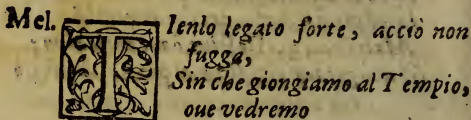 Mel. TIenlo legato forte, acciò non
fugga,
Sin che giongiamo al Tempio,
oue vedremo